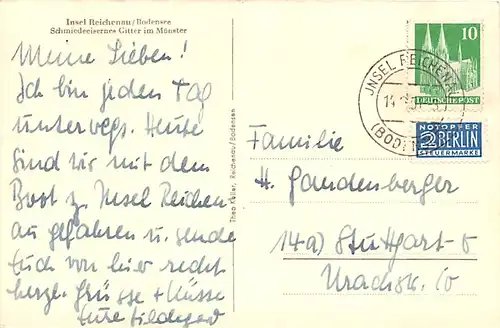 Insel Reichenau/Bodensee
Schmiedeeisernes Gitter im Münster
Meine Lieben!
Ich bin jeden Tag
unterwegs. Heute
sind wir mit dem
Boot z. Insel Reichen-
au gefahren u. sende
Euch von hier recht
herzl. Grüsse + Küsse
Eure Hildegard
Theo Keller, Reichenau/Bodensee
10
DEUTSCHE POST
JNSEL REICHENAU
(BODENSEE)
NOTOPFER
2 BERLIN
STEUERMARKE
Familie
H. Gandenberger
14a) Stuttgart-O
Urachstr. 10